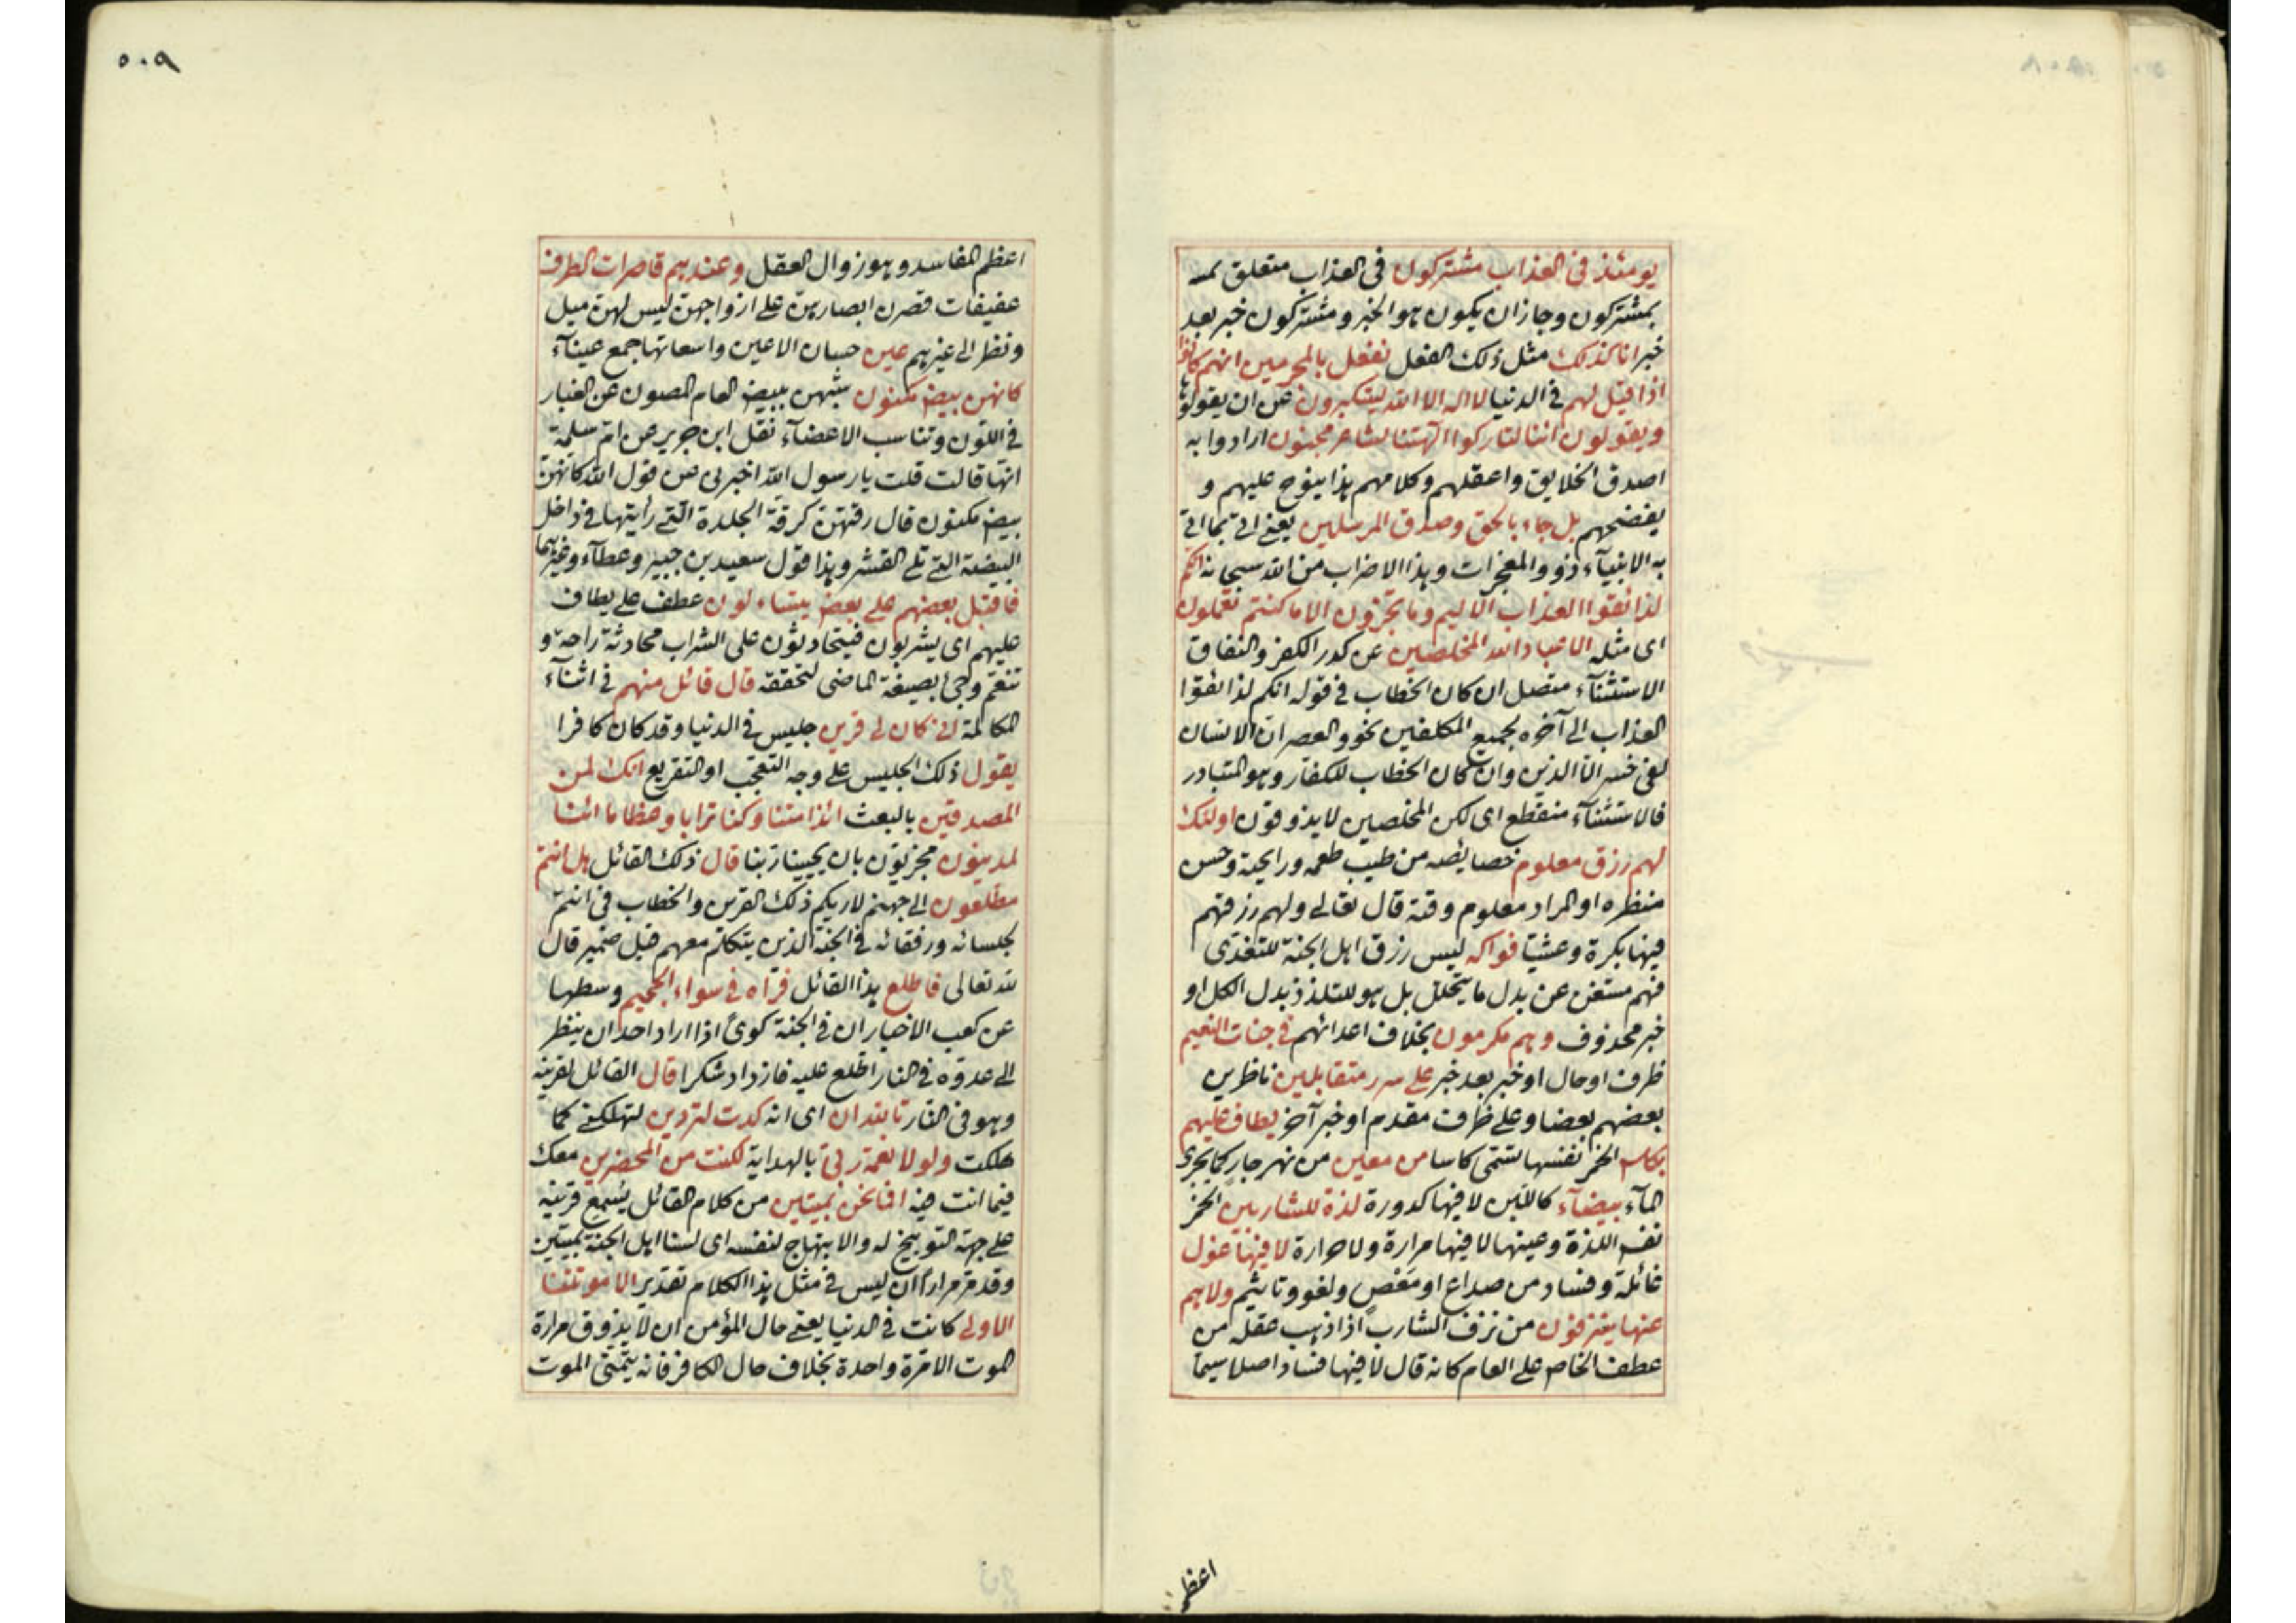 يومئذ في العذاب مشتركون في العذاب متعلق
بمشتركون وجاز ان يكون هو الخبر ومشتركون خبر بعد
خبر انا كذلك مثل ذلك الفعل نفعل بالمجرمين انهم كانوا
اذا قيل لهم في الدنيا لا اله الا الله يستكبرون عن ان يقولوها
ويقولون ائنا لتاركوا آلهتنا لشاعر مجنون ارادوا به
اصدق الخلايق واعقلهم وكلامهم هذا ينوح عليهم و
يفضحهم بل جاء بالحق وصدق المرسلين يعني اتى بما اتى
به الانبياء ذوو المعجزات وهذا الاضراب من الله سبحانه انكم
لذائقوا العذاب الاليم وما تجزون الا ما كنتم تعملون
اى مثله الا عباد الله المخلصين عن كدر الكفر والنفاق
الاستثناء متصل ان كان الخطاب في قوله انكم لذائقوا
العذاب الى آخره لجميع المكلفين نحو والعصر ان الانسان
لفى خسر الا الذين وان كان الخطاب للكفار وهو المتبادر
فالاستثناء منقطع اى لكن المخلصين لا يذوقون اولئك
لهم رزق معلوم خصايصه من طيب طعمه ورايحة وحسن
منظره او المراد معلوم وقته قال تعالى ولهم رزقهم
فيها بكرة وعشيا فواكه ليس رزق اهل الجنة للتغذى
فهم مستغن عن بدل ما يتحلل بل هو للتلذذ بدل الكل او
خبر محذوف وهم مكرمون بخلاف اعدائهم في جنات النعيم
ظرف او حال او خبر بعد خبر على سرر متقابلين ناظرين
بعضهم بعضا وعلى ظرف مقدم او خبر آخر يطاف عليهم
بكاس الخمر نفسها تسمى كاسا من معين من نهر جار كما يجرى
الماء بيضاء كاللبن لا فيها كدورة لذة للشاربين الخمر
نفس اللذة وعينها لا فيها مرارة ولا حرارة لا فيها غول
غائلة وفساد من صداع او مغص ولغو وتاثيم ولا هم
عنها ينزفون من نزف الشارب اذا ذهب عقله من
عطف الخاص على العام كانه قال لا فيها فساد اصلا سيما
اعظم
٥٠٩
اعظم المفاسد وهو زوال العقل وعندهم قاصرات الطرف
عفيفات قصرن ابصارهن على ازواجهن ليس لهن ميل
ونظر الى غيرهم عين حسان الاعين واسعاتها جمع عيناء
كانهن بيض مكنون شبههن ببيض النعام المصون عن الغبار
في اللون وتناسب الاعضاء نقل ابن جرير عن ام سلمة
انها قالت قلت يا رسول الله اخبرنى عن قول الله كانهن
بيض مكنون قال رقتهن كرقة الجلدة التى رايتها في داخل
البيضة التى تلى القشر وهذا قول سعيد بن جبير وعطاء وغيرهما
فاقبل بعضهم على بعض يتساءلون عطف على يطاف
عليهم اى يشربون فيتحادثون على الشراب محادثة راحة و
تنعم وجئ بصيغة الماضى لتحققه قال قائل منهم في اثناء
المكالمة انى كان لى قرين جليس في الدنيا وقد كان كافرا
يقول ذلك الجليس على وجه التعجب او التقريع انك لمن
المصدقين بالبعث ائذا متنا وكنا ترابا وعظاما ائنا
لمدينون مجزيون بان يحيينا ربنا قال ذلك القائل هل انتم
مطلعون الى جهنم لاريكم ذلك القرين والخطاب في انتم
لجلسائه ورفقائه في الجنة الذين يتكلم معهم قبل ضمير قال
لله تعالى فاطلع هذا القائل فرآه في سواء الجحيم وسطها
عن كعب الاخبار ان في الجنة كوى اذا اراد احد ان ينظر
الى عدوه في النار اطلع عليه فازداد شكرا قال القائل لقرينه
وهو في النار تالله ان اى انه كدت لتردين لتهلكنى كما
هلكت ولولا نعمة ربى بالهداية لكنت من المحضرين معك
فيما انت فيه افما نحن بميتين من كلام القائل يسمع قرينه
على جهة التوبيخ له والابتهاج لنفسه اى لسنا اهل الجنة بميتين
وقد مر مرارا ان ليس في مثل هذا الكلام تقدير الا موتتنا
الاولى كانت في الدنيا يعنى حال المؤمن ان لا يذوق مرارة
الموت الا مرة واحدة بخلاف حال الكافر فانه يتمنى الموت